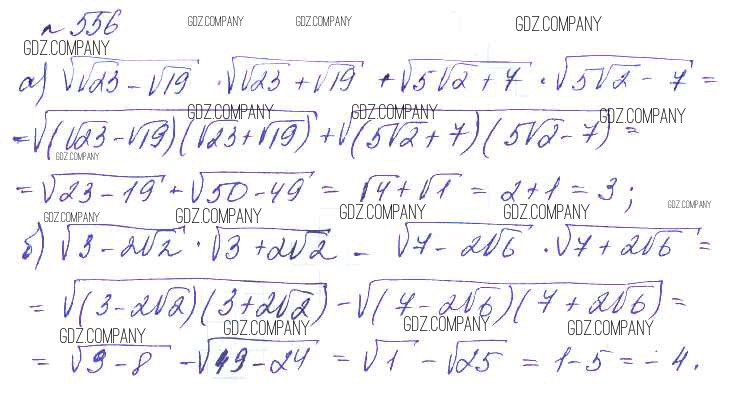 № 556 GDZ.COMPANY GDZ.COMPANY GDZ.COMPANY
GDZ.COMPANY
а) √(√23 − √19) · √(√23 + √19) + √(5√2 + 7) · √(5√2 − 7) =
GDZ.COMPANY GDZ.COMPANY GDZ.COMPANY
= √((√23 − √19)(√23 + √19)) + √((5√2 + 7)(5√2 − 7)) =
GDZ.COMPANY
= √(23 − 19) + √(50 − 49) = √4 + √1 = 2 + 1 = 3;
GDZ.COMPANY GDZ.COMPANY GDZ.COMPANY GDZ.COMPANY GDZ.COMPANY
б) √(3 − 2√2) · √(3 + 2√2) − √(7 − 2√6) · √(7 + 2√6) =
= √((3 − 2√2)(3 + 2√2)) − √((7 − 2√6)(7 + 2√6)) =
GDZ.COMPANY GDZ.COMPANY GDZ.COMPANY GDZ.COMPANY
= √(9 − 8) − √(49 − 24) = √1 − √25 = 1 − 5 = − 4.